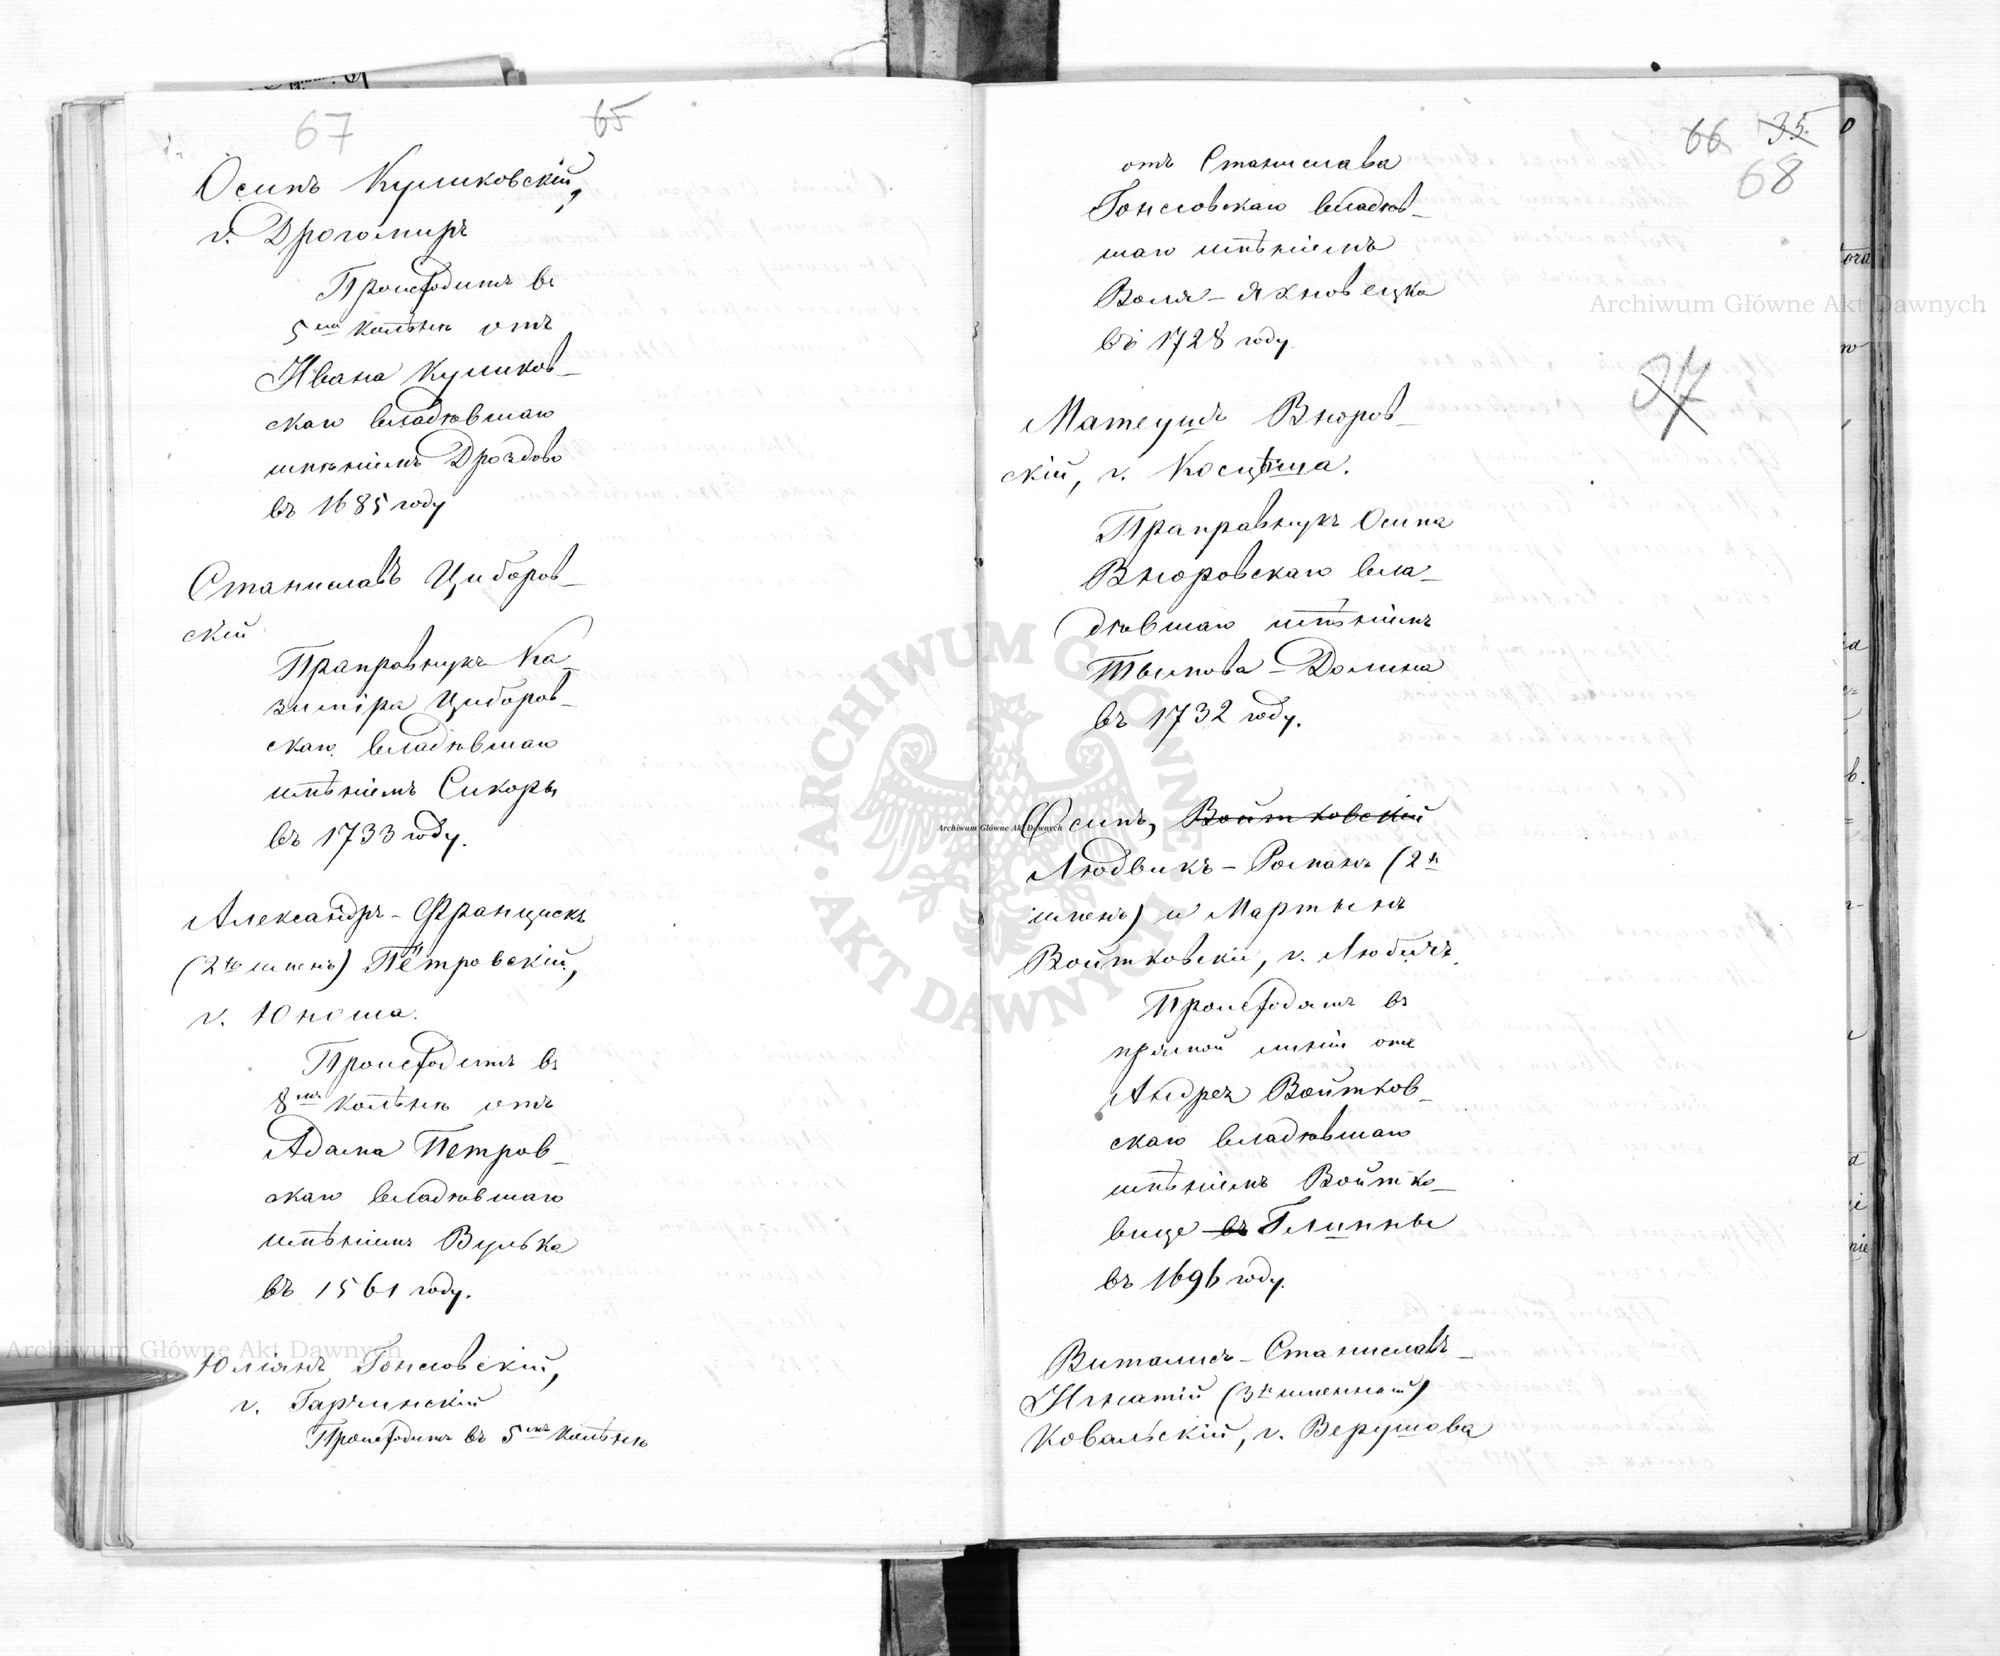 67
65
Осипъ Куликовскій,
г. Дрогомиръ
Происходитъ въ
5мъ колѣнѣ отъ
Ивана Куликов-
скаго владѣвшаго
имѣніемъ Дроздово
въ 1685 году
Станиславъ Циборов-
скій
Праправнукъ Ка-
зиміра Циборов-
скаго владѣвшаго
имѣніемъ Сикоры
въ 1733 году.
Александръ-Францискъ
(2хъ именъ) Петровскій,
г. Юноша.
Происходитъ въ
8мъ колѣнѣ отъ
Адама Петров-
скаго владѣвшаго
имѣніемъ Вулька
въ 1561 году.
Юліянъ Гонсовскій,
г.
Происходитъ въ 5мъ колѣнѣ
66 35.
68
отъ Станислава
Гонсовскаго владѣв-
шаго имѣніемъ
Воля-Яхновецка
въ 1728 году.
37
Матеушъ Вноров-
скій, г. Косцѣша.
Праправнукъ Осипа
Вноровскаго вла-
дѣвшаго имѣніемъ
Долина
въ 1732 году.
Осипъ, Войтковскій
Людвикъ-Романъ (2хъ
именъ) и Мартынъ
Войтковскіе, г. Любичъ.
Происходятъ въ
прямой линіи отъ
Андрея Войтков-
скаго владѣвшаго
имѣніемъ Войтко-
вице въ Глинны
въ 1696 году.
Виталисъ-Станиславъ-
Игнатій (3хъ именный)
Ковальскій, г. Верушова
Archiwum Główne Akt Dawnych
Archiwum Główne Akt Dawnych
Archiwum Główne Akt Dawnych
ARCHIWUM GŁÓWNE AKT DAWNYCH